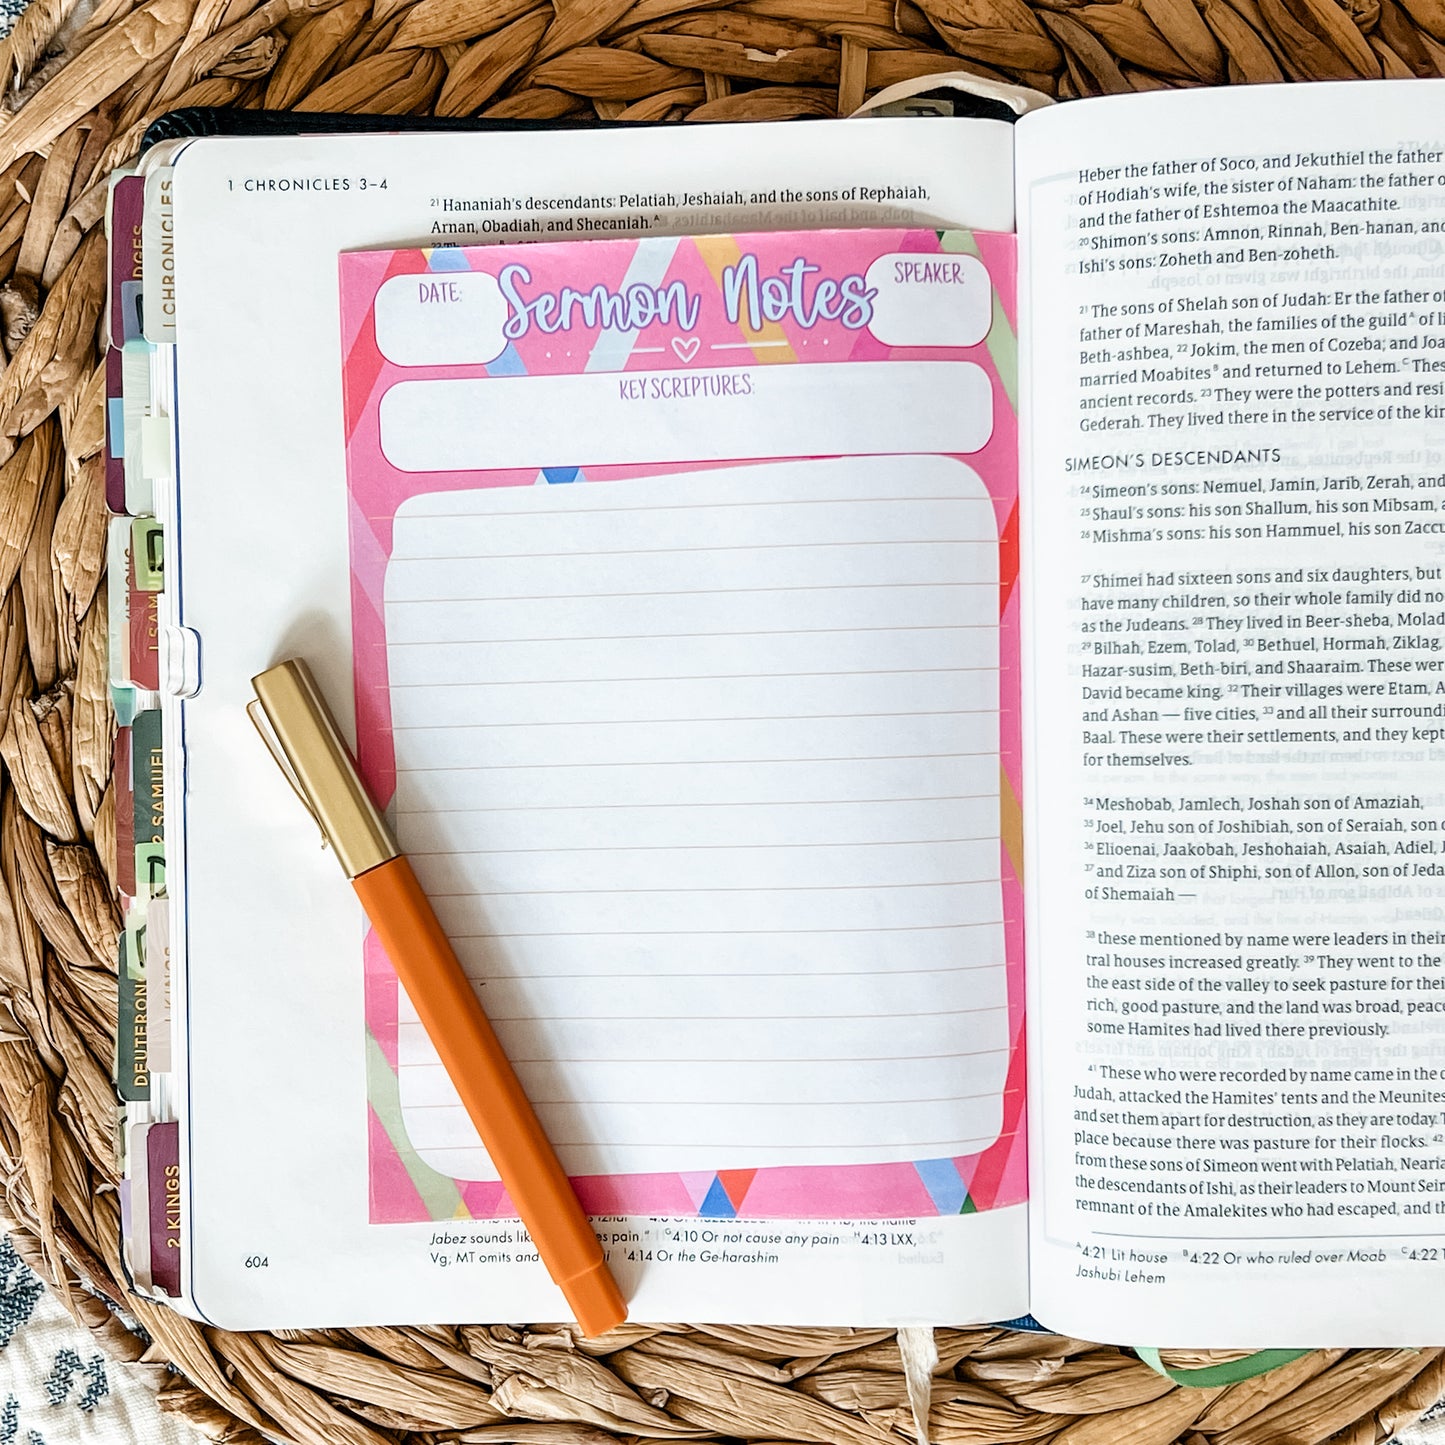 1 CHRONICLES 3–4
21 Hananiah's descendants: Pelatiah, Jeshaiah, and the sons of Rephaiah,
Arnan, Obadiah, and Shecaniah.A
DATE:
Sermon Notes
SPEAKER:
KEY SCRIPTURES:
Jabez sounds pain."  G4:10 Or not cause any pain  H4:13 LXX,
Vg; MT omits and  I4:14 Or the Ge-harashim
604
1 CHRONICLES
2 SAMUEL
2 KINGS
Heber the father of Soco, and Jekuthiel the father
of Hodiah's wife, the sister of Naham: the father
and the father of Eshtemoa the Maacathite.
20 Shimon's sons: Amnon, Rinnah, Ben-hanan, and
Ishi's sons: Zoheth and Ben-zoheth.
21 The sons of Shelah son of Judah: Er the father of
father of Mareshah, the families of the guildA of
Beth-ashbea, 22 Jokim, the men of Cozeba; and
married MoabitesB and returned to Lehem.C
ancient records. 23 They were the potters and
Gederah. They lived there in the service of the
SIMEON'S DESCENDANTS
24 Simeon's sons: Nemuel, Jamin, Jarib, Zerah, and
25 Shaul's sons: his son Shallum, his son Mibsam,
26 Mishma's sons: his son Hammuel, his son
27 Shimei had sixteen sons and six daughters, but
have many children, so their whole family did
as the Judeans. 28 They lived in Beer-sheba,
29 Bilhah, Ezem, Tolad, 30 Bethuel, Hormah, Ziklag,
Hazar-susim, Beth-biri, and Shaaraim. These
David became king. 32 Their villages were Etam,
and Ashan — five cities, 33 and all their
Baal. These were their settlements, and they kept
for themselves.
34 Meshobab, Jamlech, Joshah son of Amaziah,
35 Joel, Jehu son of Joshibiah, son of Seraiah, son
36 Elioenai, Jaakobah, Jeshohaiah, Asaiah, Adiel,
37 and Ziza son of Shiphi, son of Allon, son of
of Shemaiah —
38 these mentioned by name were leaders in their
tral houses increased greatly. 39 They went to the
the east side of the valley to seek pasture for
rich, good pasture, and the land was broad,
some Hamites had lived there previously.
41 These who were recorded by name came in the
Judah, attacked the Hamites' tents and the Meunites
and set them apart for destruction, as they are today.
place because there was pasture for their flocks. 42
from these sons of Simeon went with Pelatiah,
the descendants of Ishi, as their leaders to Mount Seir
remnant of the Amalekites who had escaped, and
A4:21 Lit house  B4:22 Or who ruled over Moab  C4:22
Jashubi Lehem